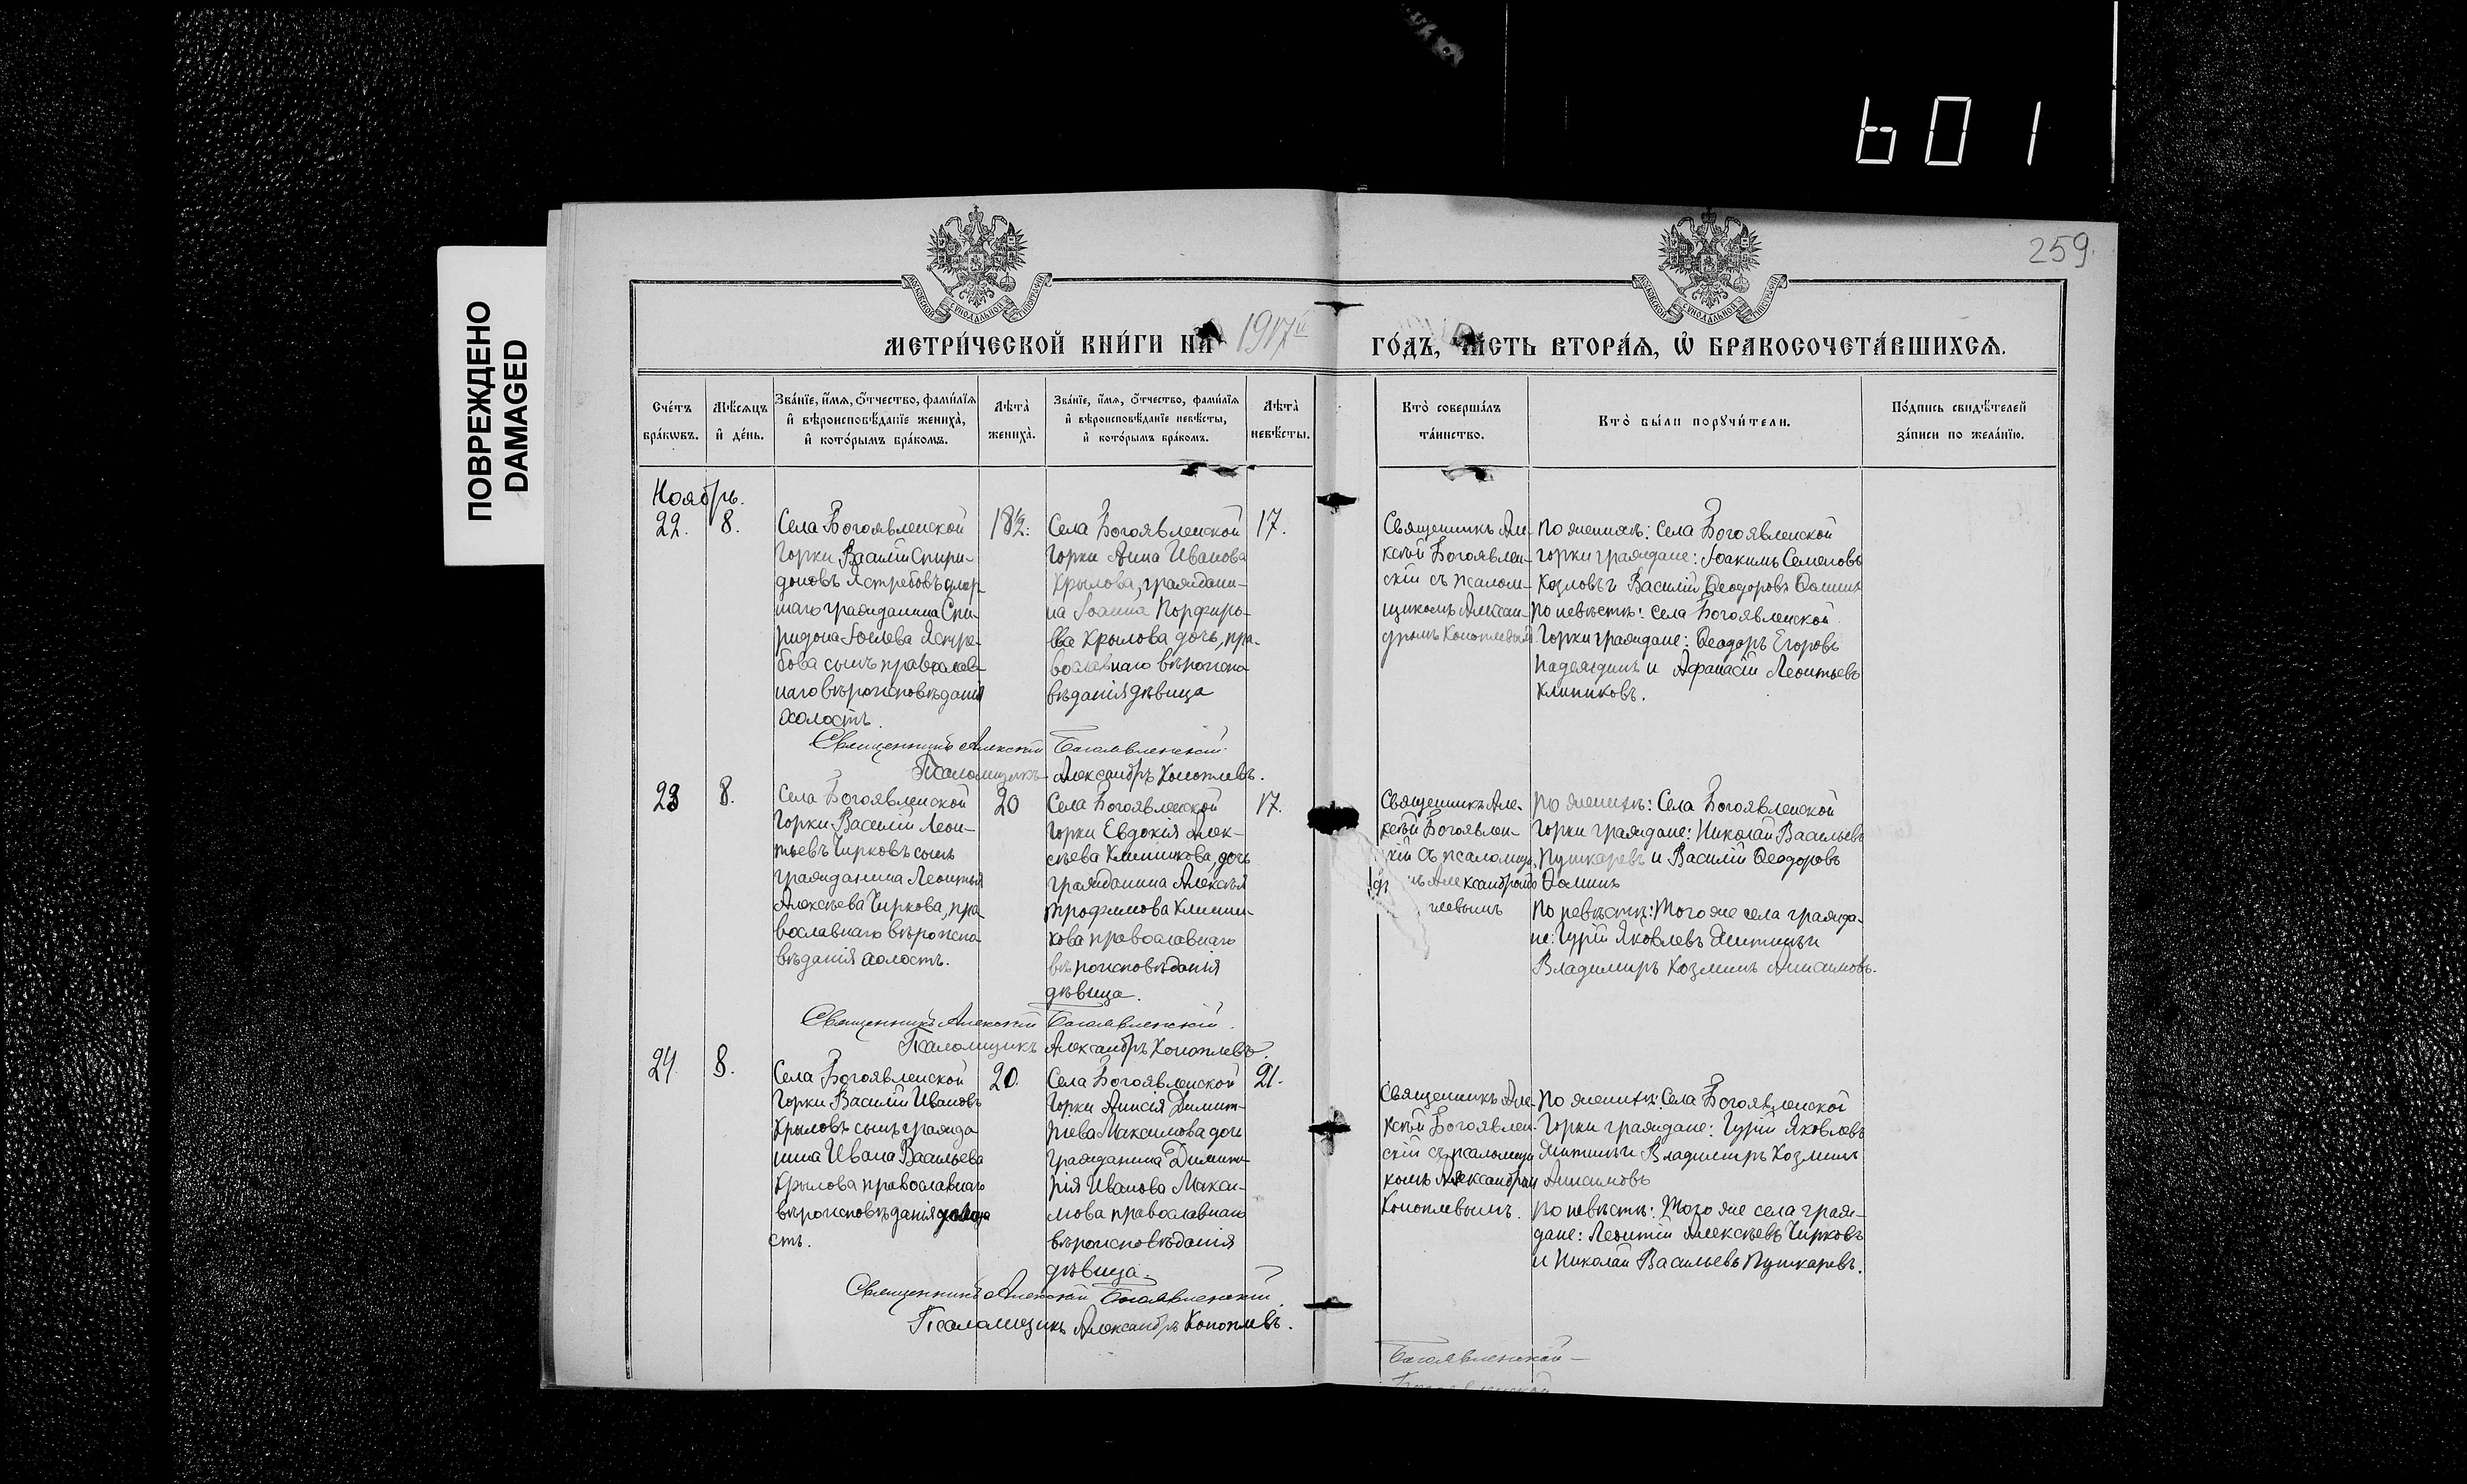 601
ПОВРЕЖДЕНО
DAMAGED
259.
МОСКОВСКОЙ СУНОДАЛЬНОЙ ТИПОГРАФІИ
МОСКОВСКОЙ СУНОДАЛЬНОЙ ТИПОГРАФІИ
МЕТРИ́ЧЕСКОЙ КНИ́ГИ НА 1917й ГО́ДЪ, ЧА́СТЬ ВТОРА́Я, Ѡ БРАКОСОЧЕТА́ВШИХСЯ.
Сче́тъ бра́кѡвъ.
Мѣ́сяцъ и҆ де́нь.
Зва́нїе, и҆́мѧ, ѻ҆́тчество, фами́лїѧ и҆ вѣроисповѣ́данїе жениха̀, и҆ кото́рымъ бра́комъ.
Лѣта̀ жениха̀.
Зва́нїе, и҆́мѧ, ѻ҆́тчество, фами́лїѧ и҆ вѣроисповѣ́данїе невѣ́сты, и҆ кото́рымъ бра́комъ.
Лѣта̀ невѣ́сты.
Кто̀ соверша́лъ та́инство.
Кто̀ бы́ли порꙋчи́тели.
По́дпись свидѣ́телей за́писи по жела́нїю.
Ноябрь.
22.
8.
Села Богоявленской
Горки Василій Спири-
доновъ Ястребовъ
гражданина Спи-
ридона Іоилева Ястре-
бова сынъ православ-
наго вѣроисповѣданія
холостъ.
18½.
Села Богоявленской
Горки Анна Иванова
Крылова, граждани-
на Іоанна Порфирь-
ева Крылова дочь, пра-
вославнаго вѣроиспо-
вѣданія дѣвица
17.
Священникъ Але-
ксѣй Богоявлен-
скій съ псалом-
щикомъ Алексан-
дромъ Коноплевым
По женихѣ: Села Богоявленской
горки граждане: Іоакимъ Семеновъ
Козловъ и Василій Ѳеодоровъ Ѳоминъ
По невѣстѣ: Села Богоявленской
Горки граждане: Ѳеодоръ Егоровъ
Надеждинъ и Афанасій Леонтьевъ
Клипиковъ.
Священникъ Алексѣй Богоявленскій.
Псаломщикъ Александръ Коноплевъ.
23
8.
Села Богоявленской
Горки Василій Леон-
тьевъ Чирковъ сынъ
гражданина Леонтія
Алексѣева Чиркова, пра-
вославнаго вѣроиспо-
вѣданія холостъ.
20
Села Богоявленской
Горки Евдокія Алек-
сѣева Клишикова, дочь
гражданина Алексѣя
Трофимова Клиши-
кова православнаго
вѣроисповѣданія
дѣвица.
17.
Священникъ Але-
ксѣй Богоявлен-
кій съ псаломщ
Александромъ
плевымъ
По женихѣ: Села Богоявленской
Горки граждане: Николай Васильевъ
Пушкаревъ и Василій Ѳеодоровъ
Ѳоминъ
По невѣстѣ: Того же села гражда-
не: Гурій Яковлевъ Митинъ и
Владиміръ Козминъ Анисимовъ.
Священникъ Алексѣй Богоявленскій.
Псаломщикъ Александръ Коноплевъ.
24.
8.
Села Богоявленской
Горки Василій Ивановъ
Крыловъ сынъ гражда
нина Ивана Васильева
Крылова православнаго
вѣроисповѣданія холо
стъ.
20.
Села Богоявленской
Горки Анисія Димит-
ріева Максимова дочь
гражданина Димит-
рія Иванова Макси-
мова православнаго
вѣроисповѣданія
дѣвица.
21.
Священникъ Але-
ксѣй Богоявлен-
скій съ псаломщи
комъ Александром
Коноплевымъ.
По женихѣ: Села Богоявленской
Горки граждане: Гурій Яковлевъ
Митинъ и Владиміръ Козминъ
Анисимовъ
По невѣстѣ: Того же села граж-
дане: Леонтій Алексѣевъ Чирковъ
и Николай Васильевъ Пушкаревъ.
Священникъ Алексѣй Богоявленскій.
Псаломщикъ Александръ Коноплевъ.
Богоявленской